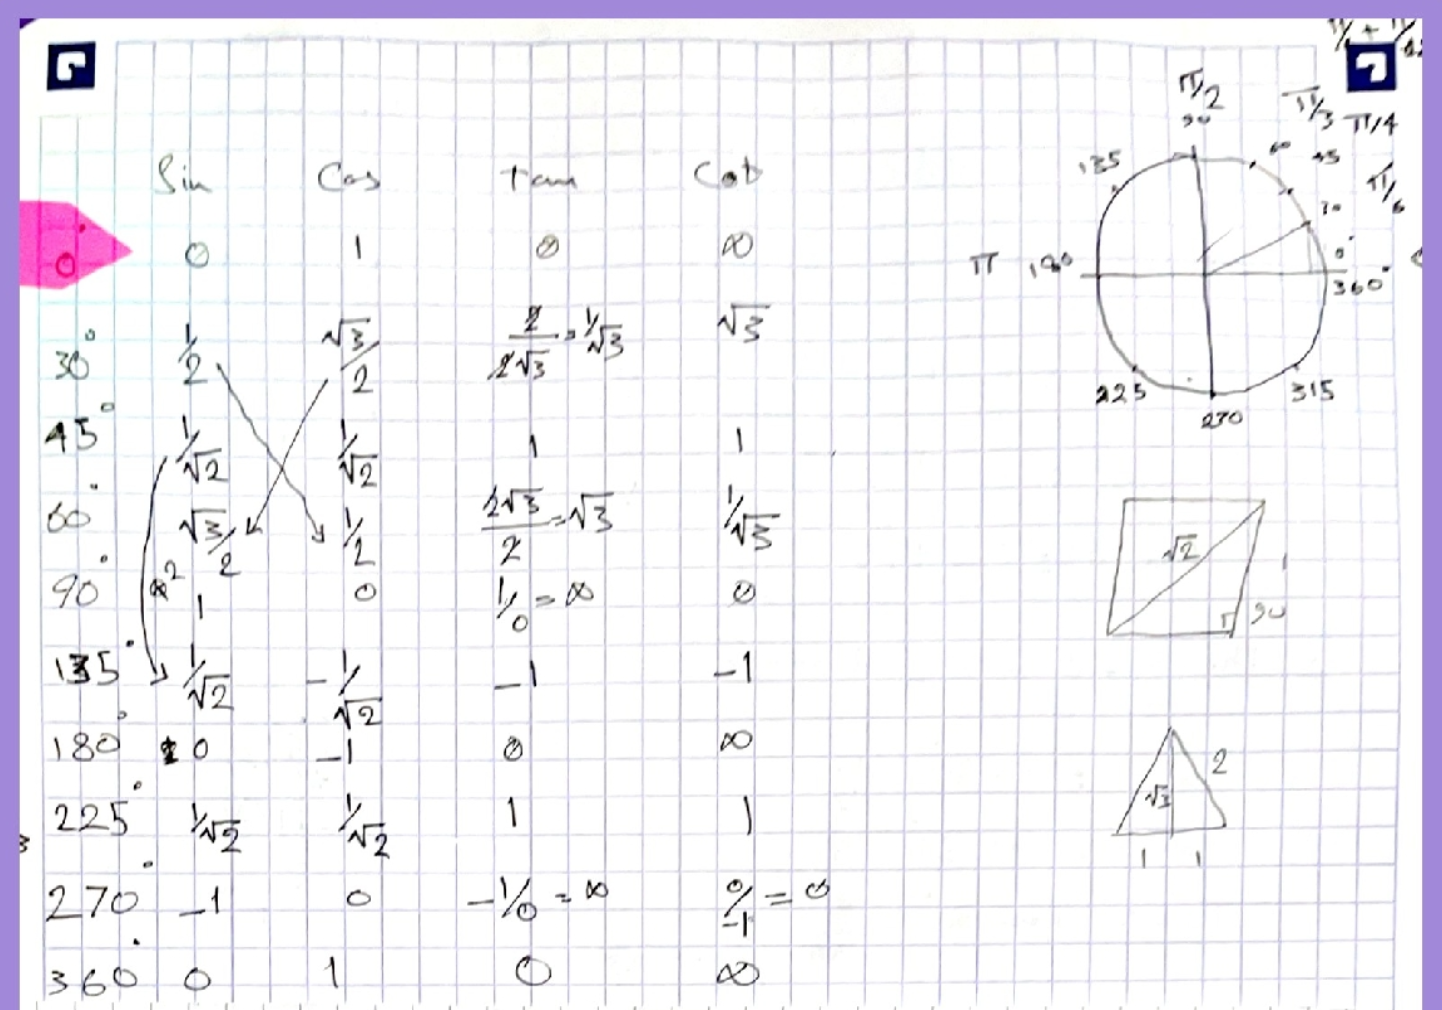 Sin Cos Tan Cot
0° 0 1 0 ∞
30° 1/2 √3/2 2/2√3 = 1/√3 √3
45° 1/√2 1/√2 1 1
60° √3/2 1/2 2√3/2 = √3 1/√3
90° 1 0 1/0 = ∞ 0
135° 1/√2 -1/√2 -1 -1
180° 0 -1 0 ∞
225° 1/√2 1/√2 1 1
270° -1 0 -1/0 = ∞ 0/-1 = 0
360° 0 1 0 ∞
π/2
90
π/3
π/4
135
60
45
π/6
30
π 180°
0°
360°
225
270
315
√2
1
90
2
√3
1 1